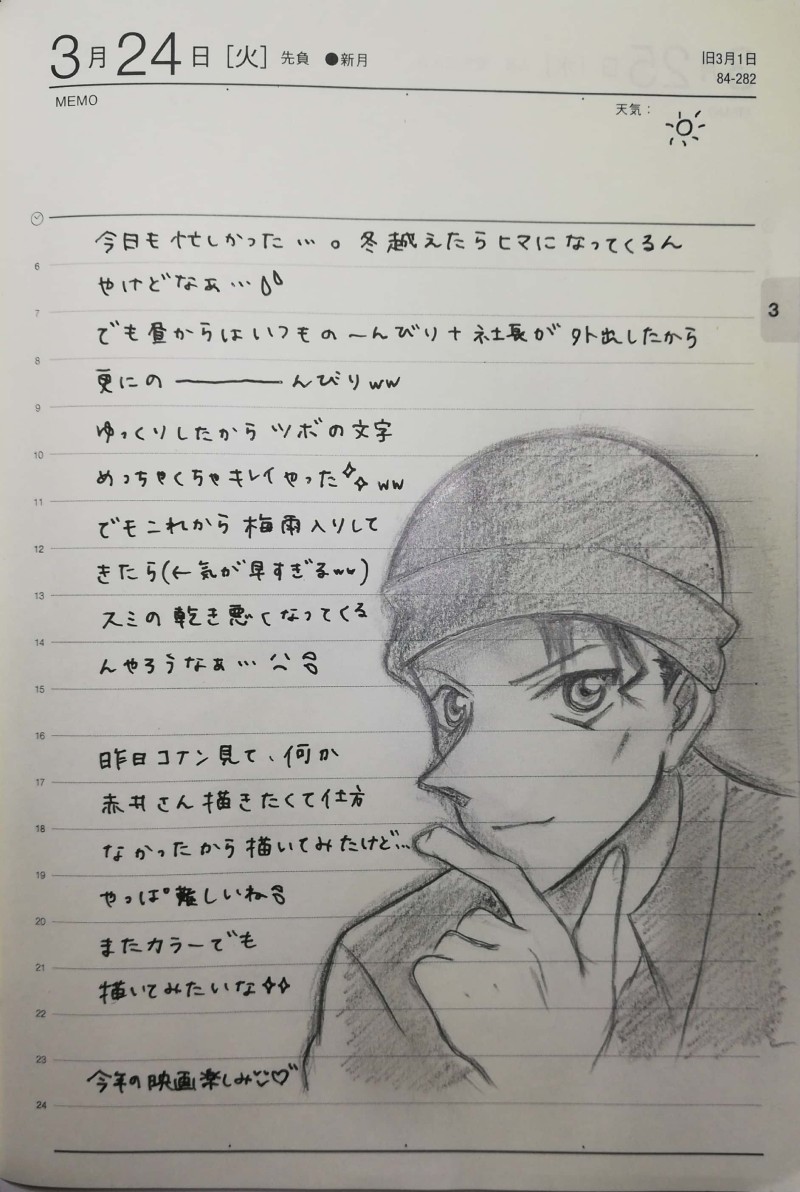 3月24日［火］先負 ●新月
旧3月1日
84-282
MEMO
天気：
今日も忙しかった…。冬越えたらヒマになってくるん
6
やけどなぁ…
7
でも昼からはいつもの〜んびり＋社長が外出したから
3
8
更にの―――んびりww
9
ゆっくりしたから ツボの文字
10
めっちゃくちゃキレイやった ww
11
でもこれから 梅雨入りして
12
きたら(←気が早すぎるww)
13
スミの 乾き悪くなってくる
14
んやろうなぁ…
15
16
昨日コナン見て、何か
17
赤井さん描きたくて仕方
18
なかったから描いてみたけど…
19
やっぱ難しいね
20
またカラーでも
21
描いてみたいな
22
23
今年の映画楽しみ♡
24